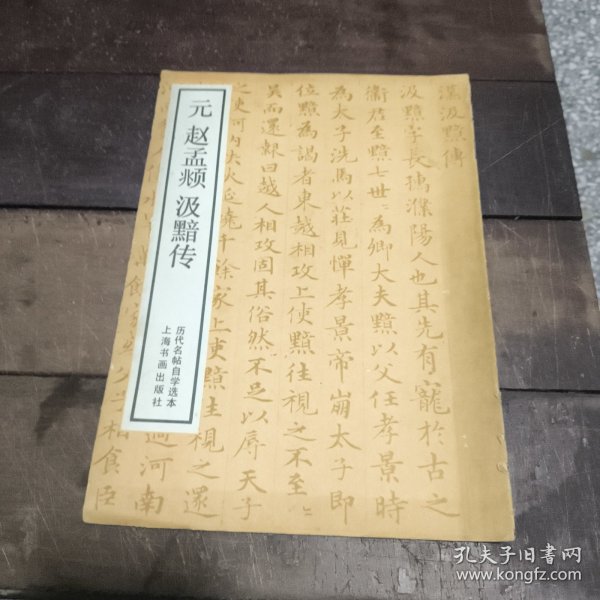 漢汲黯傳
汲黯字長孺濮陽人也其先有寵於古之
衛君至黯七世〻為卿大夫黯以父任孝景時
為太子洗馬以莊見憚孝景帝崩太子即
位黯為謁者東越相攻上使黯往視之不至〻
吳而還報曰越人相攻固其俗然不足以辱天子
之使河內失火延燒千餘家上使黯往視之還
過河南
相食臣
元 赵孟頫 汲黯传
历代名帖自学选本
上海书画出版社
孔夫子旧书网
www.kongfz.com